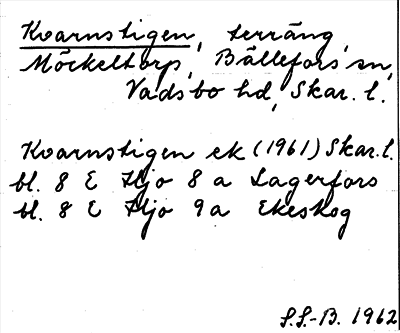 Kvarnstigen, terräng,
Möckeltorp, Bällefors sn,
Vadsbo hd, Skar. l.
Kvarnstigen ek (1961) Skar. l.
bl. 8 E Hjo 8 a Lagerfors
bl. 8 E Hjo 9 a Ekeskog
S.S.-B. 1962